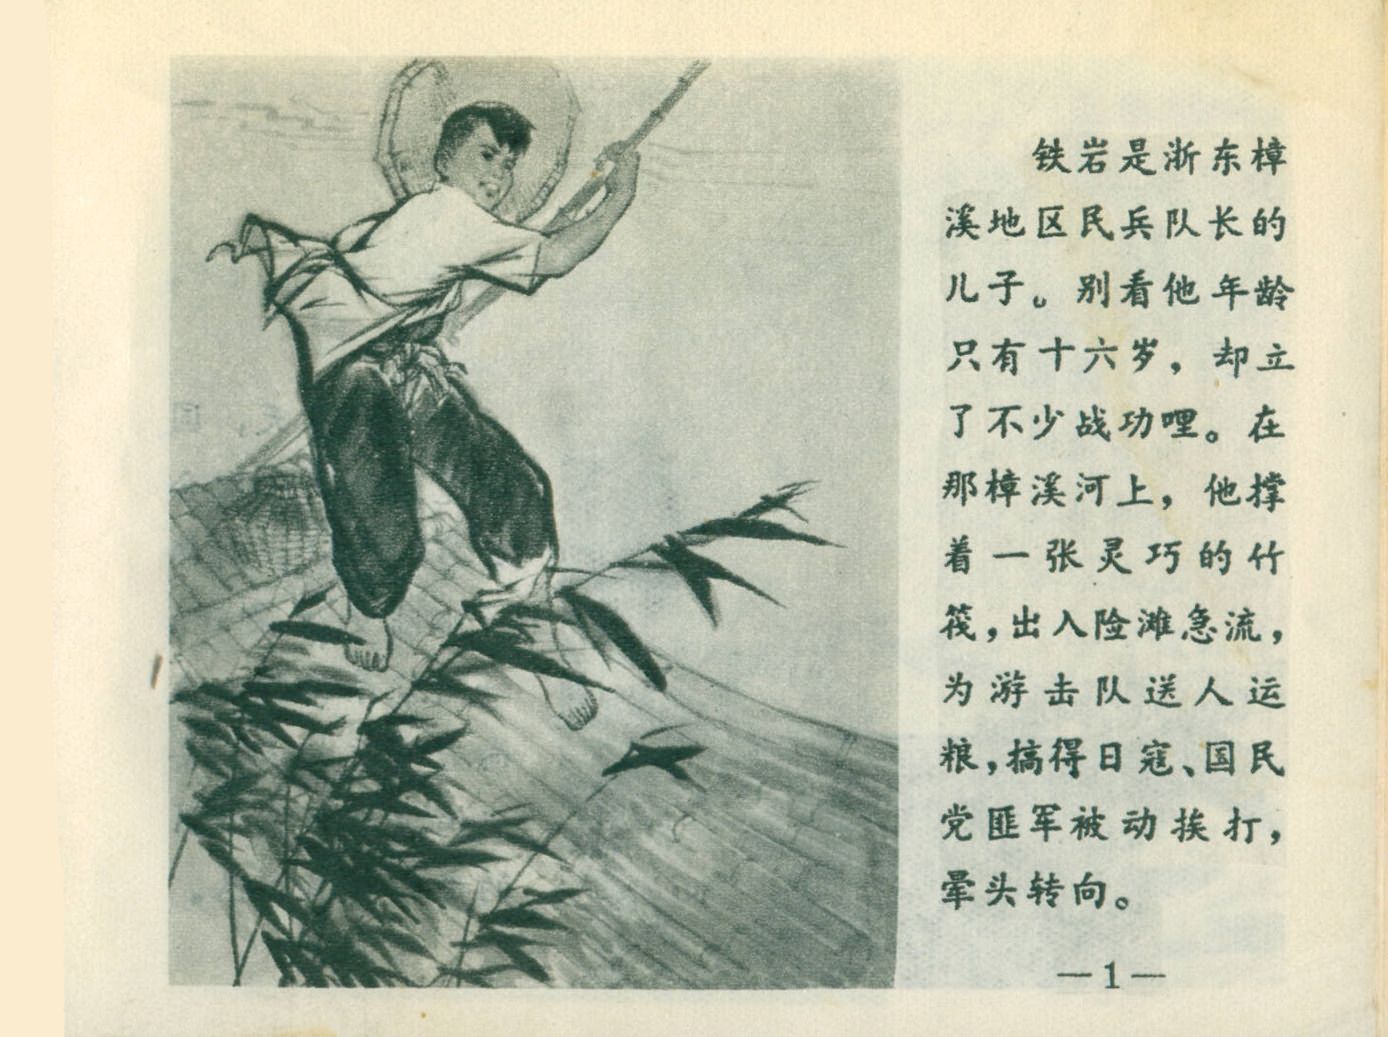 铁岩是浙东樟
溪地区民兵队长的
儿子。别看他年龄
只有十六岁，却立
了不少战功哩。在
那樟溪河上，他撑
着一张灵巧的竹
筏，出入险滩急流，
为游击队送人运
粮，搞得日寇、国民
党匪军被动挨打，
晕头转向。
—1—